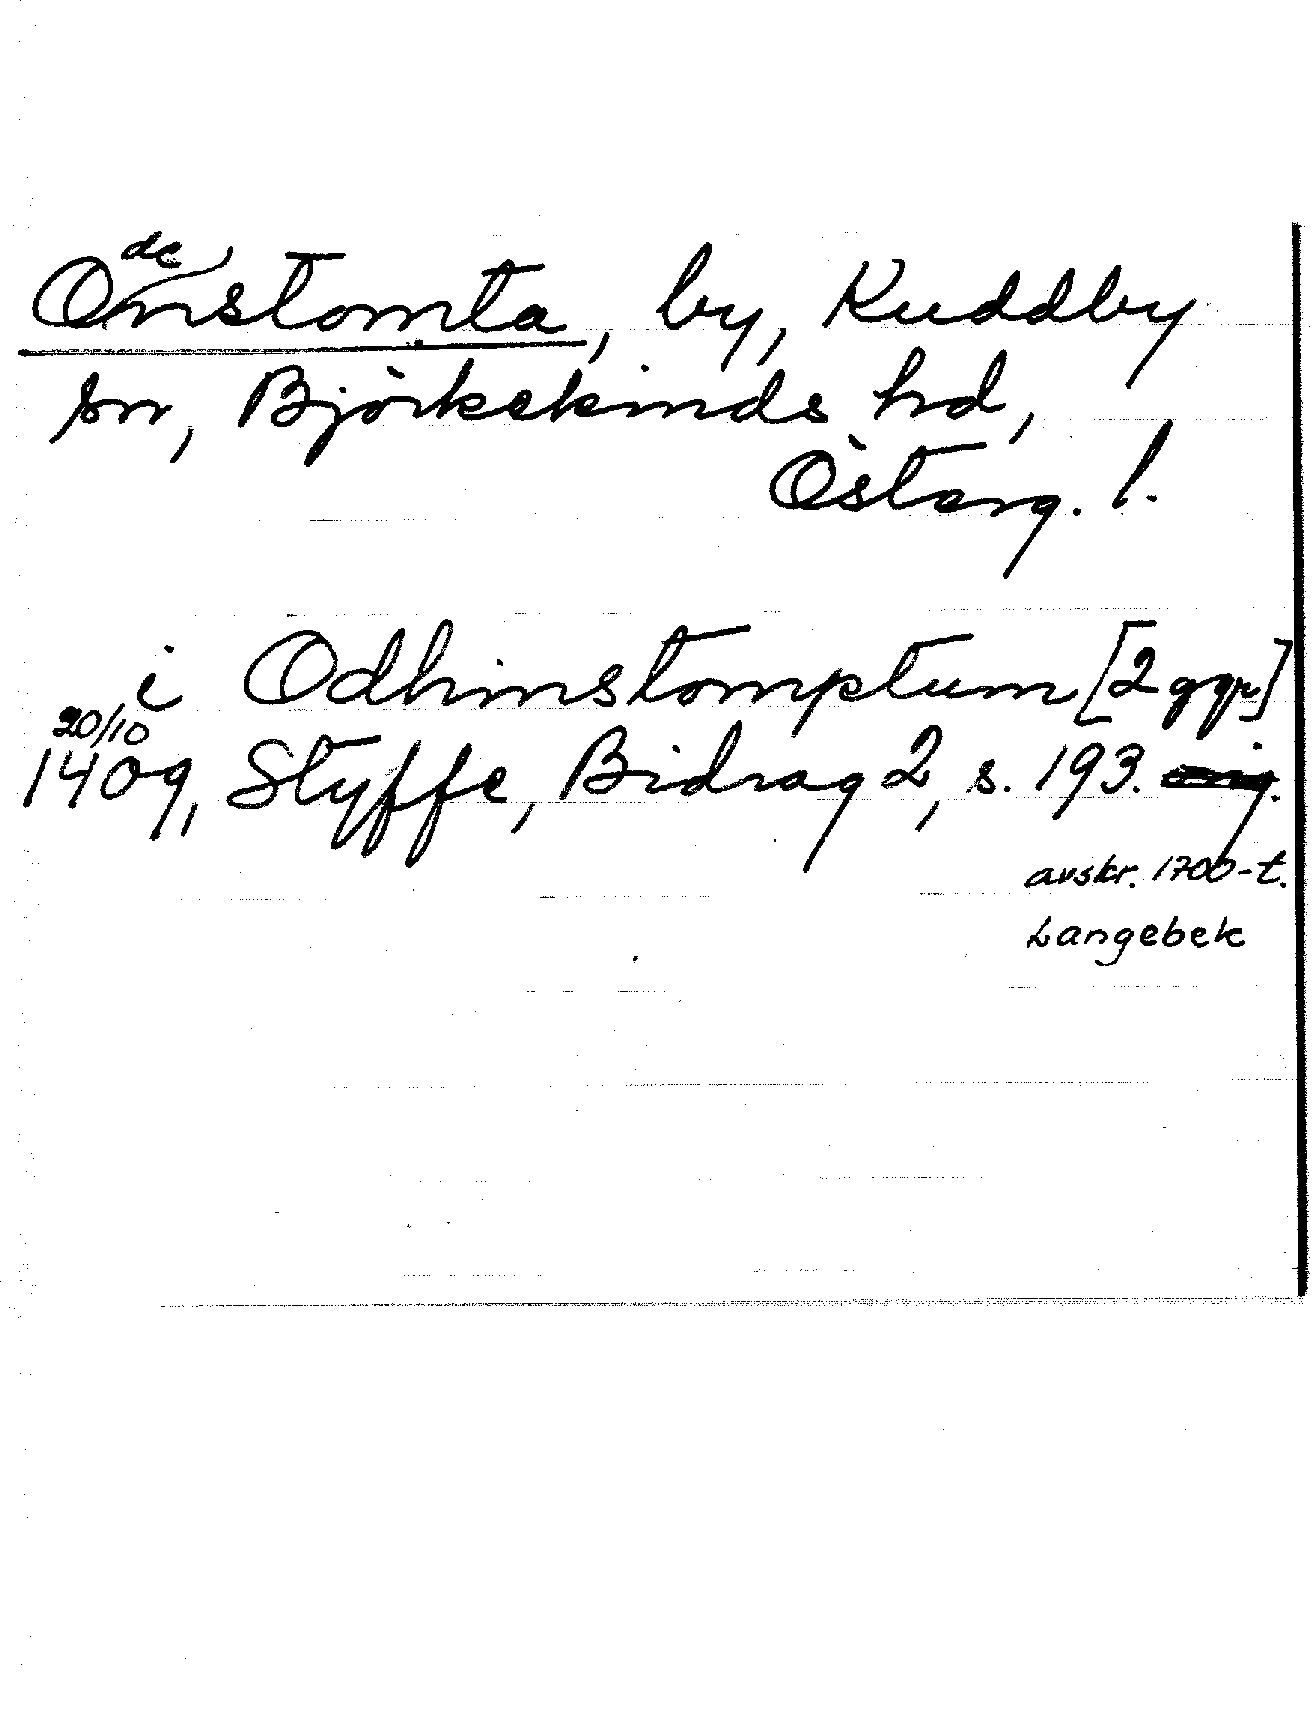 Odenstomta, by, Kuddby
sn, Björkekinds hd,
Österg. l.
i Odhinstomptum [2 ggr]
20/10
1409, Styffe, Bidrag 2, s. 193.
avskr. 1700-t.
Langebek